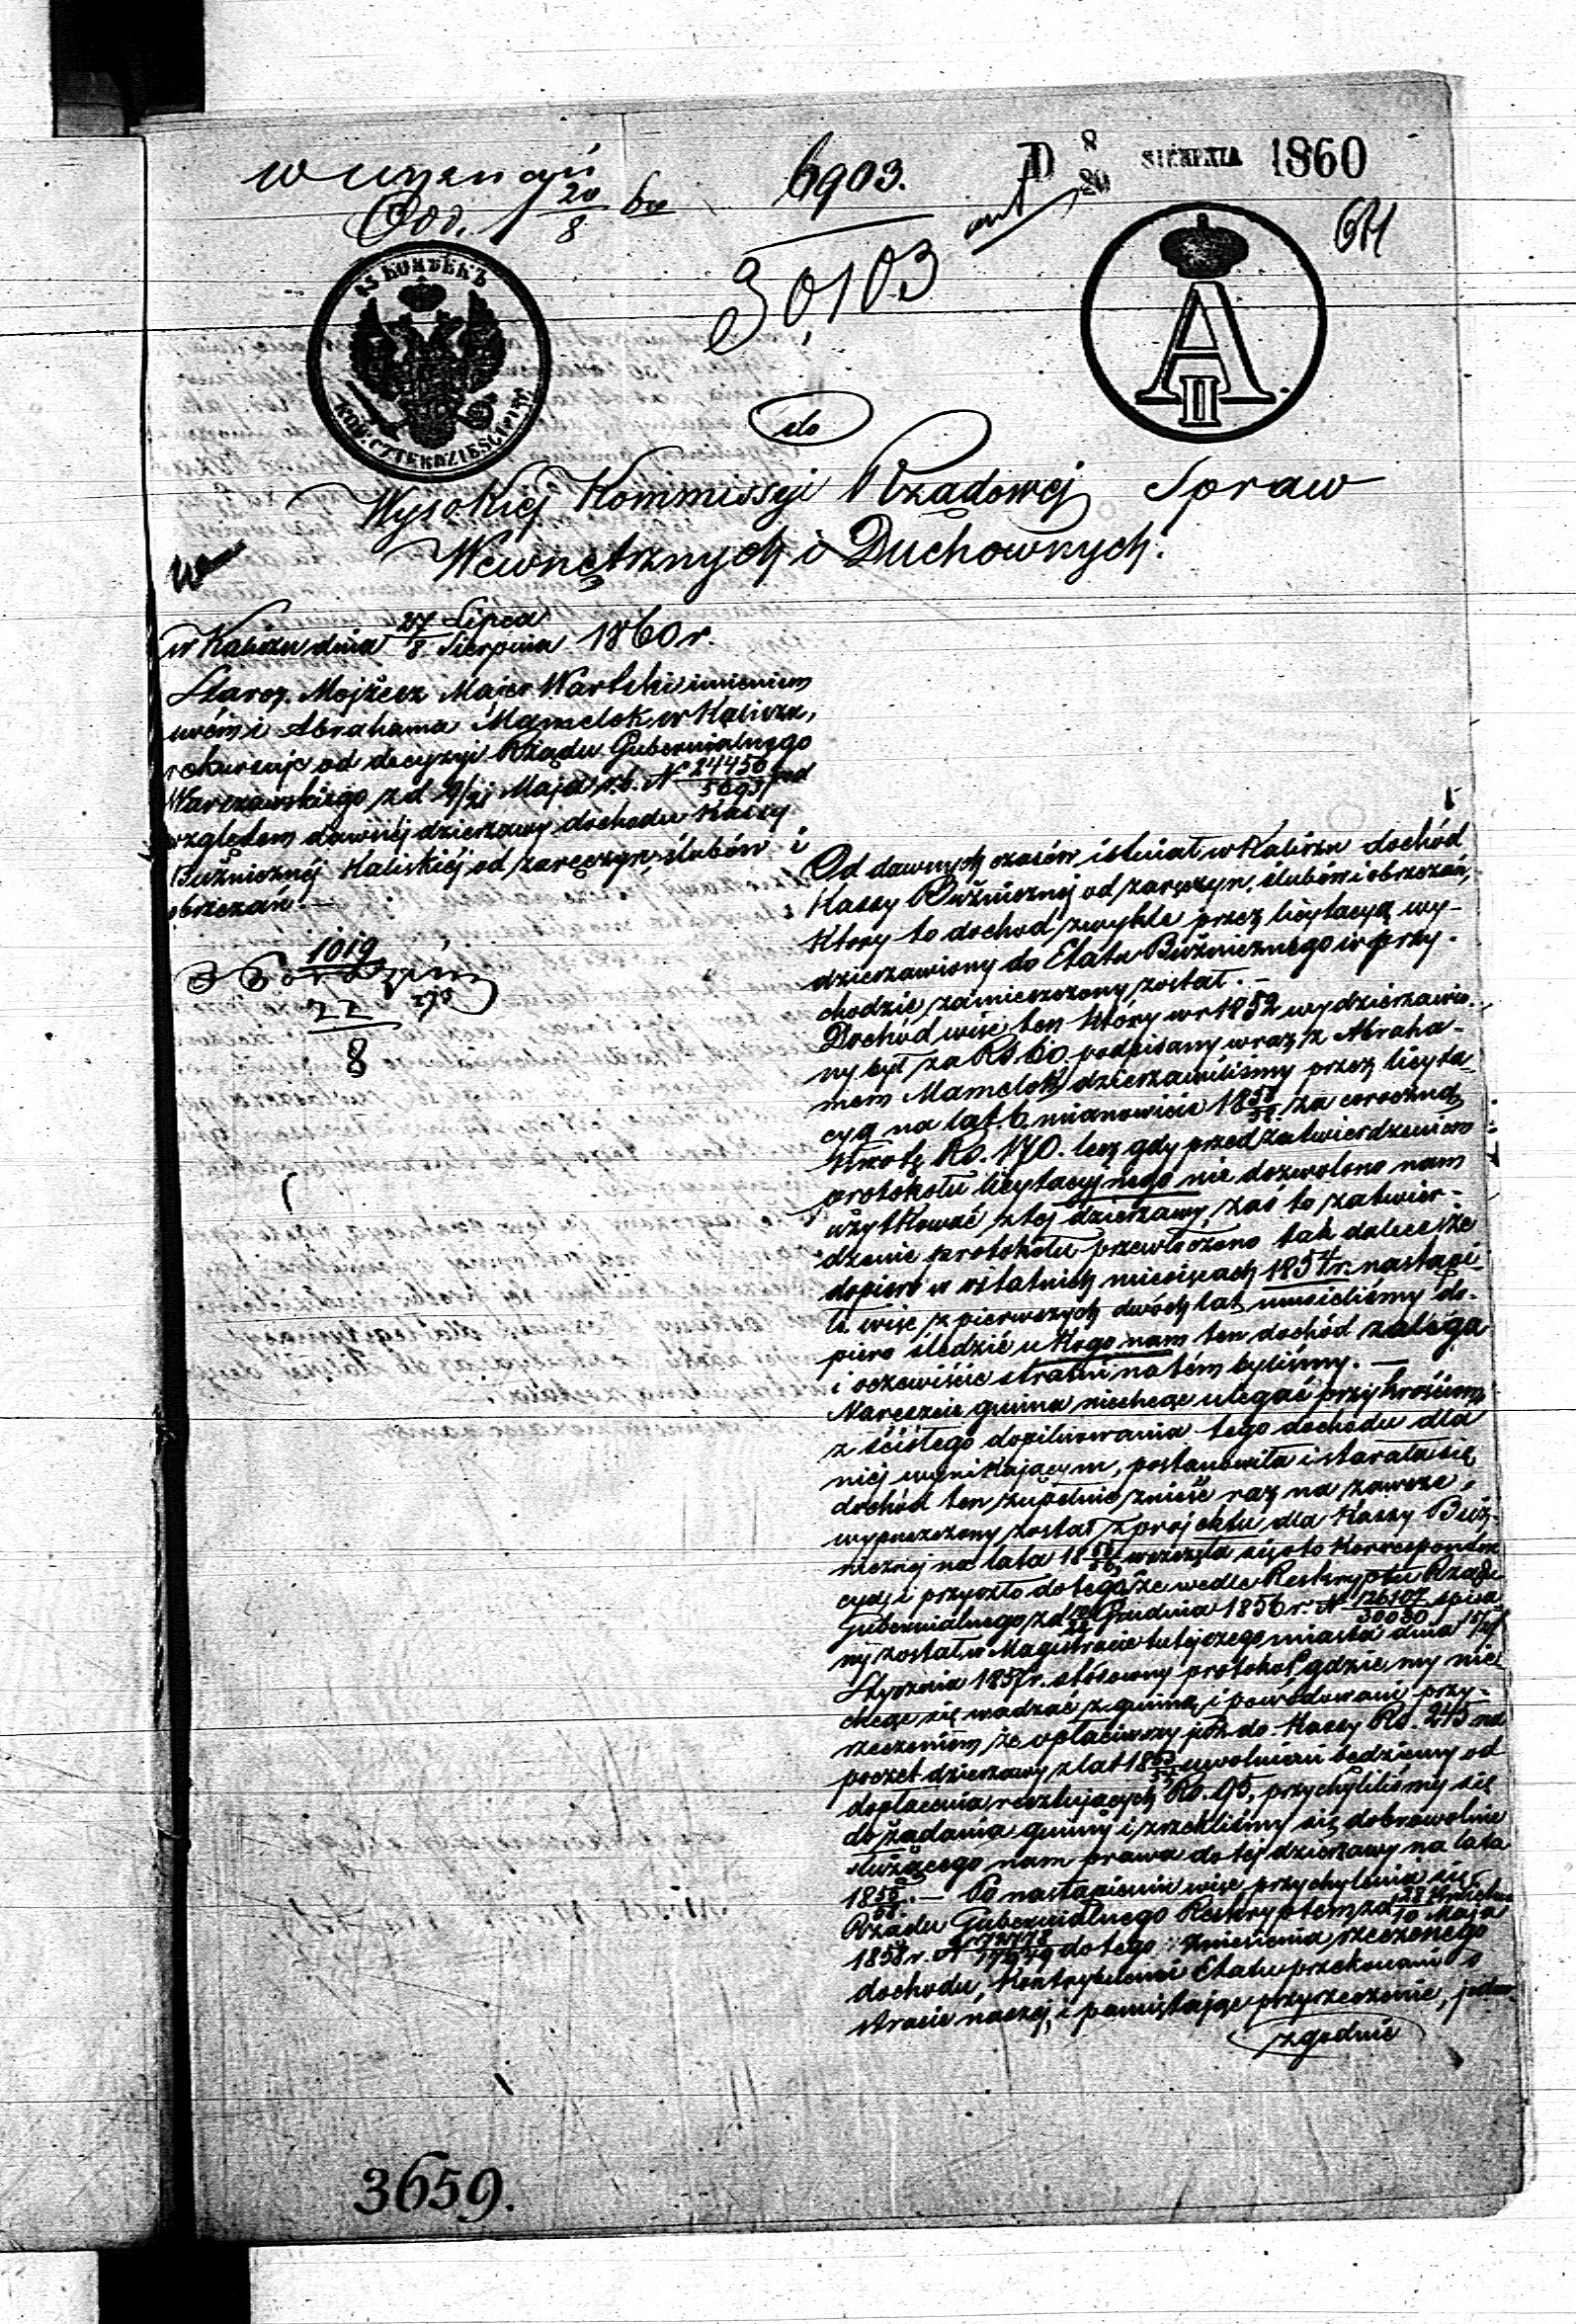 6903.
D 8/20 SIERPNIA 1860
Od. 20/8 60
30,103
45 КОПѢЕКЪ
KOP. CZTERDZIEŚCI PIĘĆ
A II
do
Wysokiéj Kommissyi Rządowéj Spraw
Wewnętrznych i Duchownych.
w Kaliszu dnia 27 Lipca / 8 Sierpnia 1860 r.
Staroz. Mojżesz Majer Wartski imieniem
swém i Abrahama Mamelok w Kaliszu,
rekuruje od decyzyi Rządu Gubernialnego
Warszawskiego z d 9/21 Maja r.b. N 24456/5693
względem dawnéj dzierzawy dochodu Kassy
Bużnicznéj Kaliskiéj od zaręczyn, ślubów i
obrzezań. —
1019
22
8
Od dawnych czasów istniał w Kaliszu dochód
Kassy Bużnicznéj od zaręczyn, ślubów i obrzezań,
który to dochod zwykle przez licytacyą wy-
dzierzawiony do Etatu Bużnicznego w przy-
chodzie zamieszczony został. —
Dochód więc ten który w r 1852 wydzierzawio-
ny był za Rs. 60. podpisany wraz z Abraha-
mem Mamelok dzierzawiliśmy przez licyta-
cyą na lat 6 mianowicie 1853/58 za coroczną
kwotę Rs. 170. lecz gdy przed zatwierdzeniem
protokołu licytacyjnego nie dozwolono nam
użytkować z téj dzierzawy, zaś to zatwier-
dzenie protokołu przewleczono tak dalece że
dopiero w ostatnich miesiącach 1854 r. nastąpi-
ło więc z pierwszych dwóch lat musieliśmy do-
piero śledzić u kogo nam ten dochód zalega
i oczewiście stratni na tém byliśmy. —
Nareszcie gmina niechcąc ulegać przykrościom
z ścisłego dopilnowania tego dochodu dla
niéj wynikającym, postanowiła i starała się
dochód ten zupełnie znieść raz na zawsze,
wypuszczony został z projektu dla Kassy Buż-
nicznéj na lata 1856/58, wszczęła się o to korresponden-
cya, i przyszło do tego że wedle Reskryptu Rządu
Gubernialnego z d Grudnia 1856 r. N 126107/30030 spisa-
ny został w Magistracie tutejszego miasta dnia
Stycznia 1857 r. stósowny protokoł, gdzie my nie
chcąc się wadzać z gminą, i powodowani przy-
rzeczeniem że opłaciwszy już do Kassy Rs. 245 na
poczet dzierzawy z lat 1853/54 uwolnieni będziemy od
dopłacenia resztujących Rs. 95, przychyliliśmy się
do żądania gminy i zrzekliśmy się dobrowolnie
służącego nam prawa do téj dzierzawy na lata
1856/58. — Po nastąpieniu więc przychylenia się
Rządu Gubernialnego Reskryptem z d 28 Kwietnia / 10 Maja
1858 r. N do tego zniesienia rzeczonego
dochodu, Kontrybuenci Etatu przekonani o
stracie naszéj, i pamiętając przyrzeczenie, jedno-
zgodnie
3659.